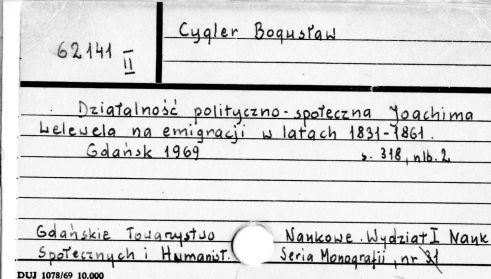 Cygler Bogusław
62141
II
Działalność polityczno-społeczna Joachima
Lelewela na emigracji w latach 1831-1861.
Gdańsk 1969 s. 318, nlb. 2
Gdańskie Towarzystwo Naukowe. Wydział I Nauk
Społecznych i Humanist. Seria Monografii, nr 31
DUJ 1078/69 10.000